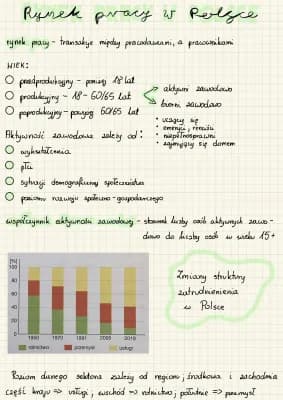 Rynek pracy w Polsce
rynek pracy - transakcje między pracodawcami, a pracownikami
WIEK:
przedprodukcyjny - poniżej 18 lat
produkcyjny - 18 - 60/65 lat
aktywni zawodowo
bierni zawodowo
poprodukcyjny - powyżej 60/65 lat
• uczący się
• emeryci, renciści
• niepełnosprawni
• zajmujący się domem
Aktywność zawodowa zależy od:
wykształcenia
płci
sytuacji demograficznej społeczeństwa
poziomu rozwoju społeczno-gospodarczego
współczynnik aktywności zawodowej - stosunek liczby osób aktywnych zawo-
dowo do liczby osób w wieku 15+
[%]
100
80
60
40
20
0
1950 1970 1991 2005 2019
rolnictwo przemysł usługi
Zmiany struktury
zatrudnienia
w Polsce
Poziom danego sektora zależy od regionu; środkowa i zachodnia
część kraju => usługi, wschód => rolnictwo; południe => przemysł